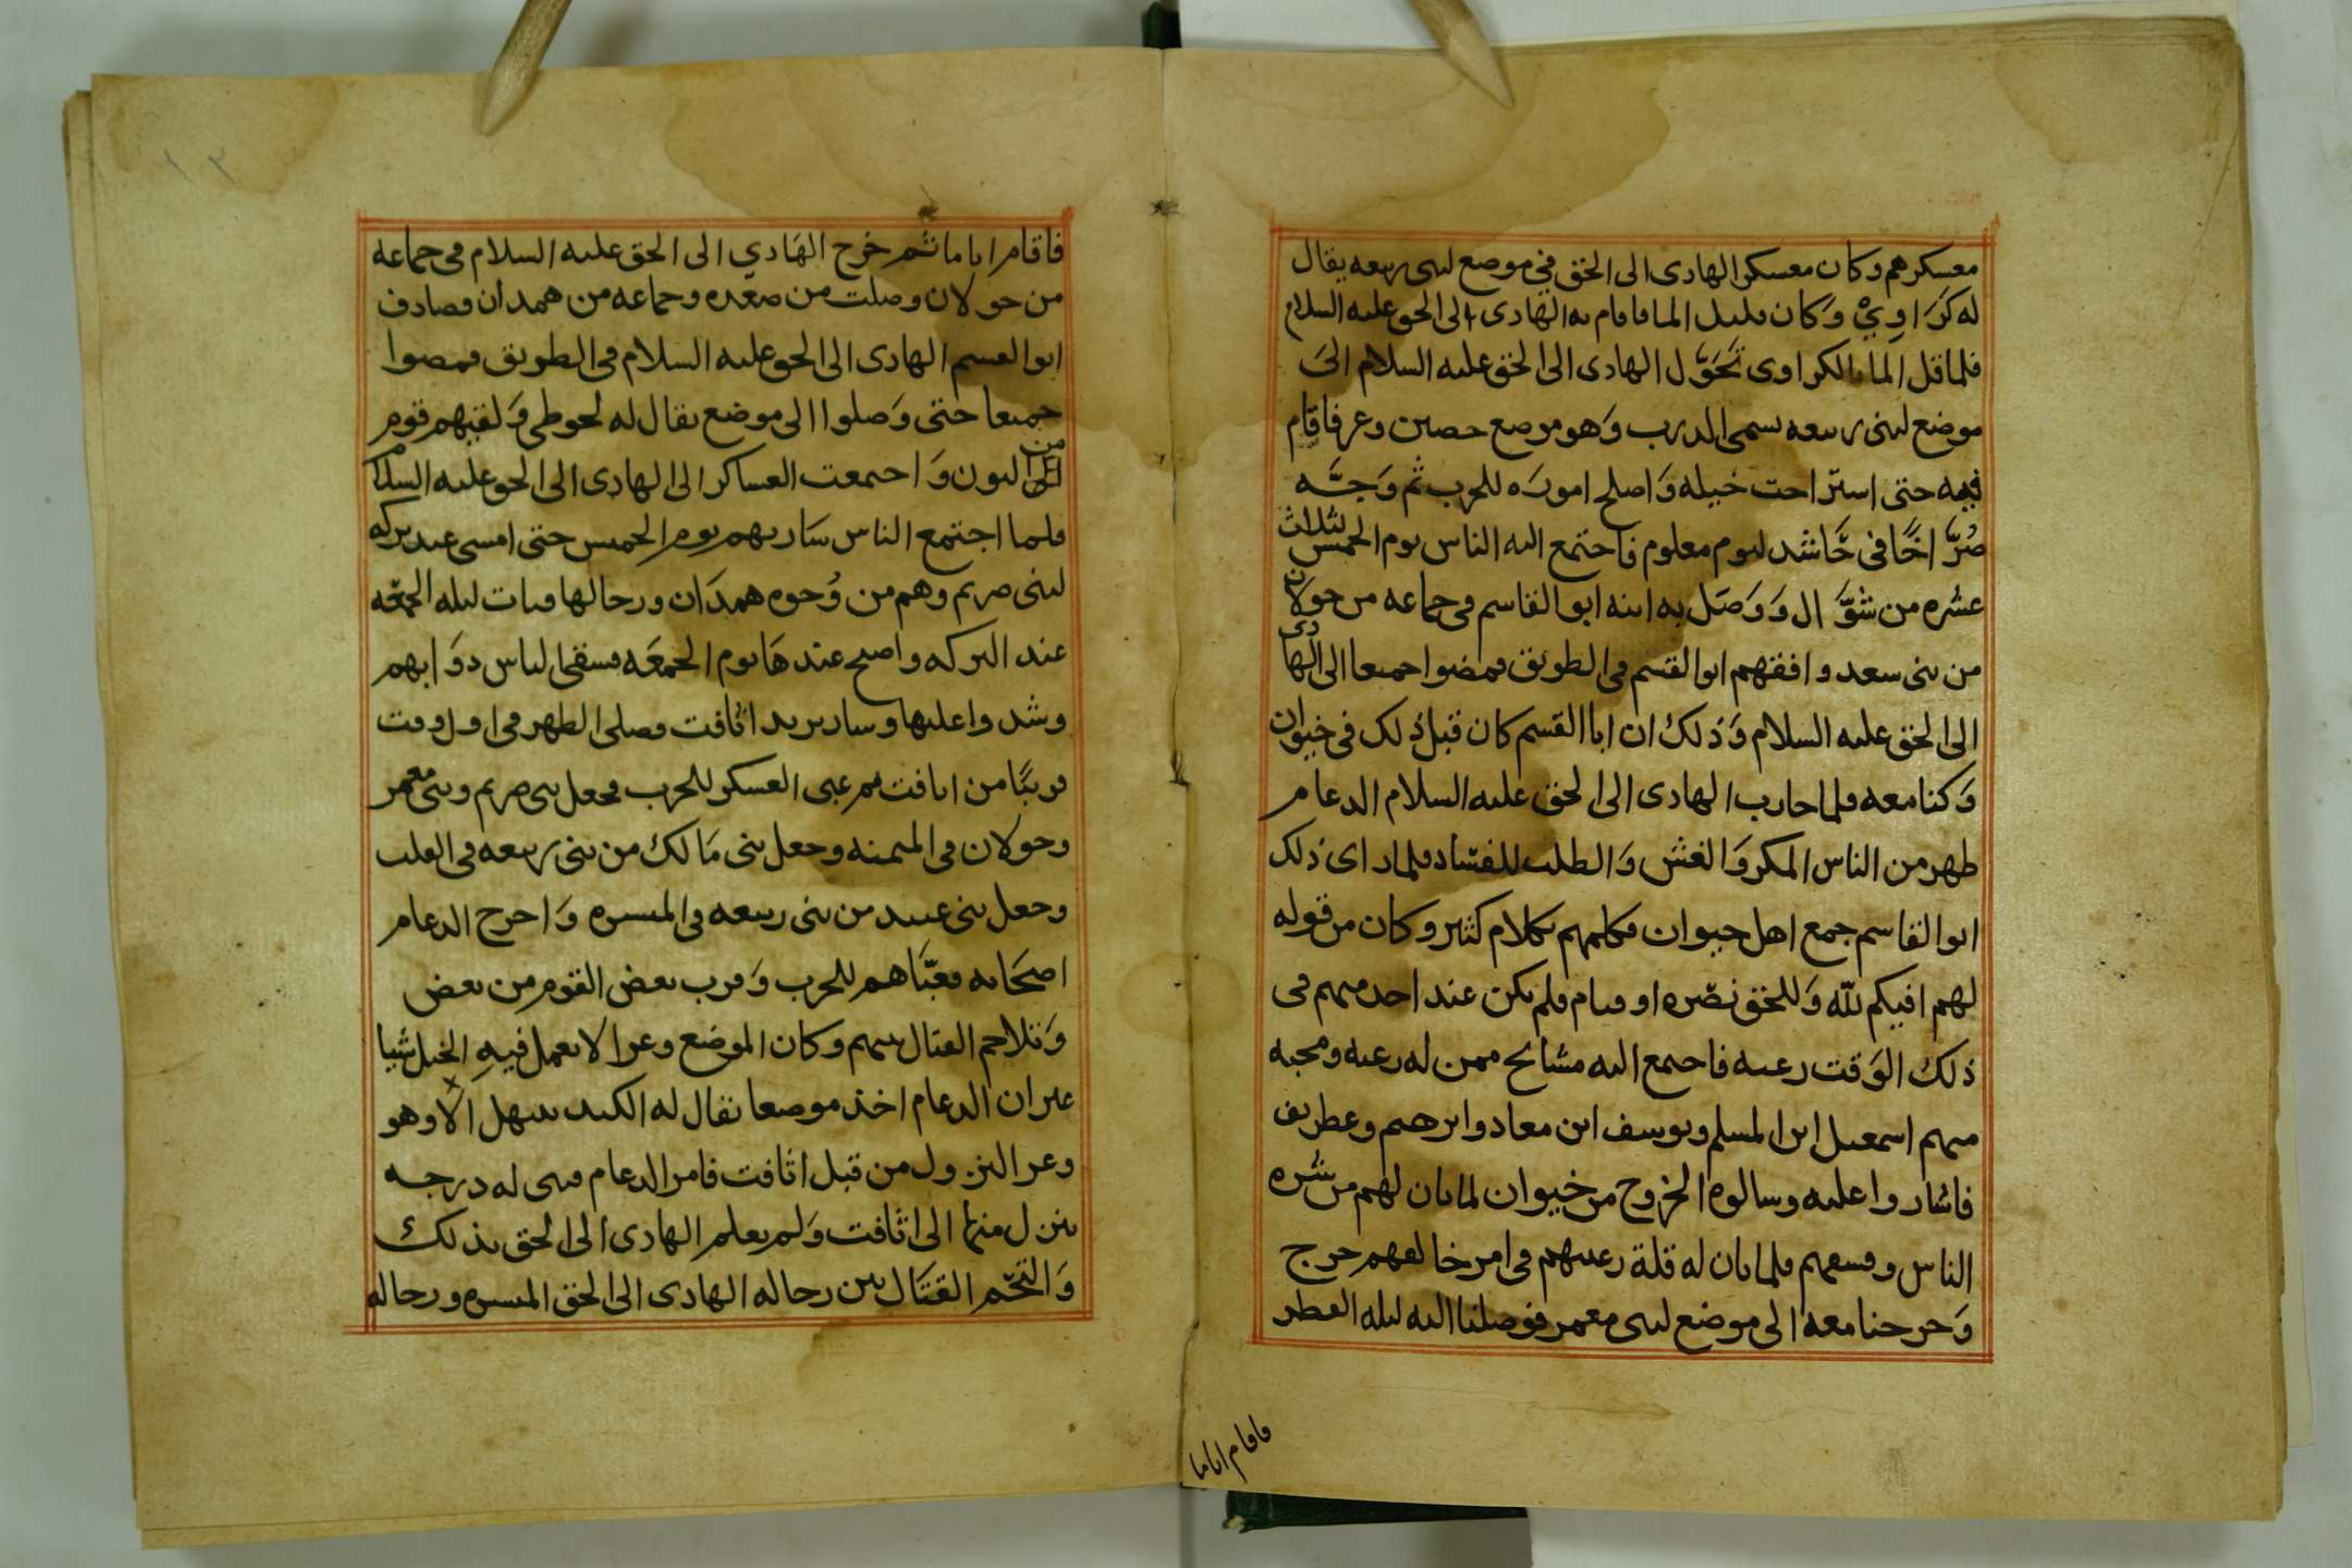 معسكرهم وكان معسكر الهادى الى الحق في موضع لبنى ربيعه يقال
له كَرَاوِيْ وَكان قليل الما فاقام به الهادى الى الحق عليه السلام
فلما قل الما بالكراوى تَحَوَّل الهادى الى الحق عليه السلام الىَ
موضع لبنى ربيعه يسمى الدرب وَهو موضع حصين وعر فاقام
فيه حتى استراحت خيله وَاصلح امورَه للحرب ثم وَجَّه
صُرَّاخًا فى حَاشد ليوم معلوم فاجتمع اليه الناس يوم الخميس لثلاث
عشره من شوَّال وَوَصَل به ابنه ابو القاسم فى جماعه من خولان
من بنى سعد وافقهم ابو القسم فى الطريق فمضوا جميعا الى الهادى
الى الحق عليه السلام وَذلك ان ابا القسم كان قبل ذلك فى خيوان
وَكنا معه فلما حارب الهادى الى الحق عليه السلام الدعام
ظهر من الناس المكر وَالغش وَالطلب للفساد فلما راى ذلك
ابو القاسم جمع اهل خيوان فكلمهم بكلام كثير وكان من قوله
لهم افيكم للّه وَللحق نصره او قيام فلم يكن عند احد منهم فى
ذلك الوَقت رغبه فاجتمع اليه مشايخ ممن له رغبه ومحبه
منهم اسمعيل ابن المسلم ويوسف ابن معاد وابرهيم وعطريف
فاشاروا عليه وسالوه الخروج من خيوان لما بان لهم من شره
الناس وفسقهم فلما بان له قلة رغبتهم فى امر خالقهم خرج
وَخرجنا معه الى موضع لبنى معمر فوصلنا اليه ليله الفطر
فاقام اياما
فاقام اياما ثم خرج الهَادي الى الحق عليه السلام فى جماعه
من خولان وصلت من صعده وجماعه من همدان وصادف
ابو القسم الهادى الى الحق عليه السلام فى الطريق فمضوا
جميعا حتى وَصلوا الى موضع يقال له لحوطى وَلقيهم قوم
من اهل البون وَاجتمعت العساكر الى الهادى الى الحق عليه السلام
فلما اجتمع الناس سَار بهم يوم الخميس حتى امسى عند بركه
لبنى صريم وهم من وُجوه همدَان ورجالها فبات ليله الجمعَه
عند البركه واصبح عندهَا يوم الجمعَه فسقى الناس دوَابهم
وشدوا عليها وسار يريد اثافت فصلى الظهر فى اول وقت
قريبًا من اثافت ثم عبى العسكر للحرب فجعل بنى صريم وبنى معمر
وخولان فى الميمنه وجعل بنى مَالك من بنى ربيعه فى القلب
وجعل بنى عبيد من بنى ربيعه فى الميسره وَاخرج الدعام
اصحَابه فعبَّاهم للحرب وَقرب بعض القوم من بعض
وَتلاحم القتال بينهم وكان الموضع وعرا لا يعمل فيهِ الخيل شيا
غير ان الدعام اخذ موضعا يقال له الكبد سهل الا وهو
وعر النزول من قبل اثافت فامر الدعام فبنى له درجه
ينزل منها الى اثافت وَلم يعلم الهادى الى الحق بذلك
وَالتحَم القتَال بين رجاله الهادى الى الحق الميسره ورجاله
١٣